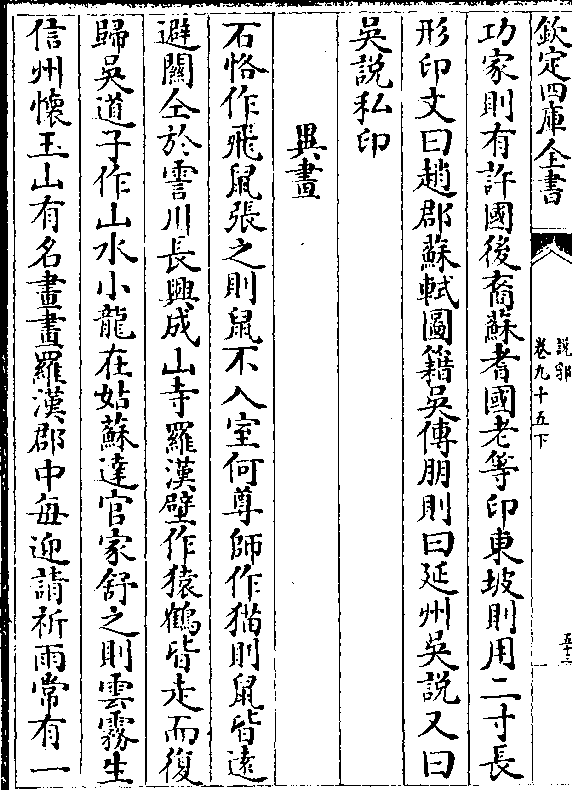 欽定四庫全書
說郛
卷九十五下
功家則有許國後裔蘇耆國老等印東坡則用二寸長
形印文曰趙郡蘇軾圖籍吳傅朋則曰延州吳說又曰
吳說私印
異畫
石恪作飛鼠張之則鼠不入室何尊師作猫則鼠皆遠
避關仝於霅川長興成山寺羅漢壁作猿鶴皆走而復
歸吳道子作山水小龍在姑蘇達官家舒之則雲霧生
信州懷玉山有名畫畫羅漢郡中每迎請祈雨常有一